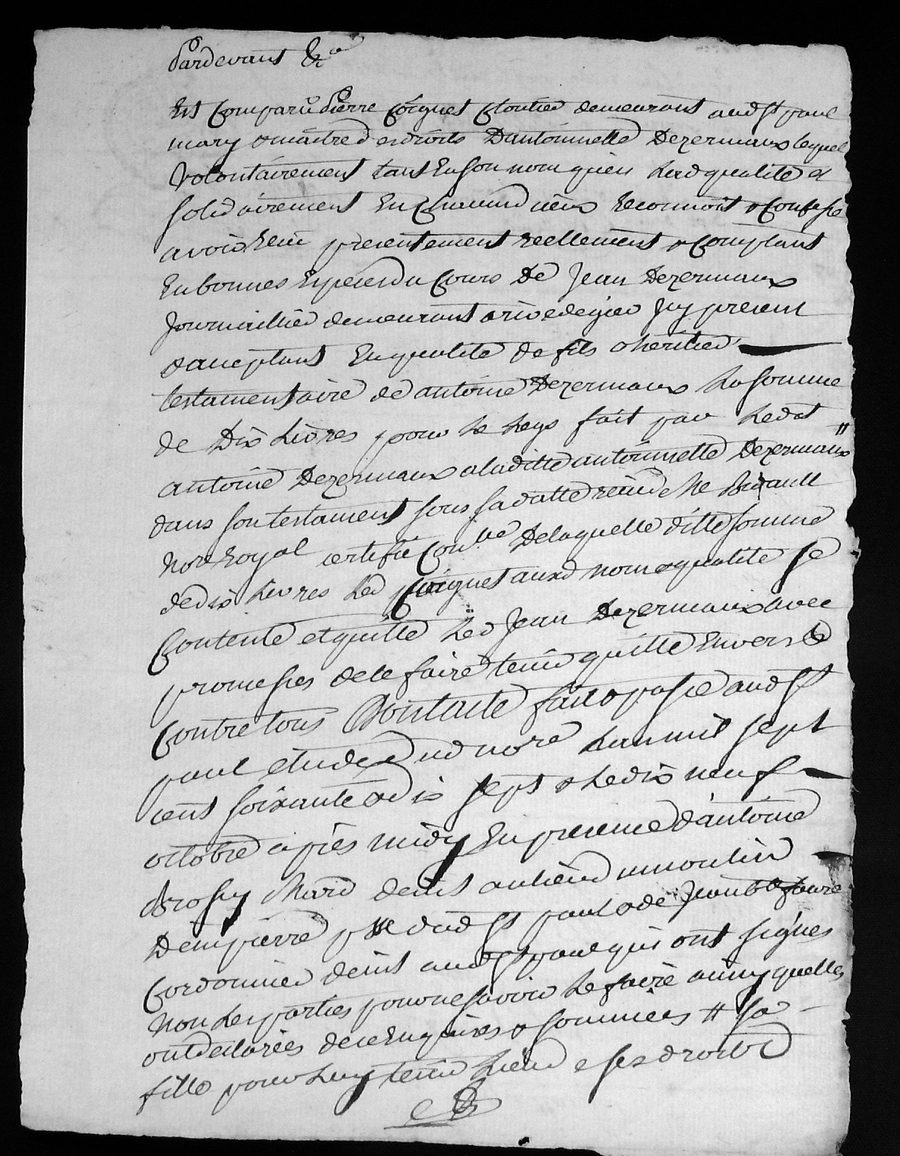 Pardevant &ca
Est Comparu pierre Coignet Cloutier demeurant aud St paul
mary & maitre des droits D'antoinnette Dezermaux lequel
Volontairement tant En son nom qu'en lad qualité et
solidairement En Chacun d'iceux Reconnoit & Confesse
avoir Reçu presentement reellement & Comptant
En bonnes Espèces du Cours De Jean Dezermaux
Journaillier demeurant a rivedegier Icy present
& aceptant En qualité de fils & héritier
testamentaire de antoine Dezermaux La somme
de Dix Livres pour le legs fait par Ledt
antoine Dezermaux a laditte antoinnette Dezermaux //
dans son testament sous sa datte reçu Me
Nore Royal certifié Conle De laquelle ditte somme
de dix Livres Led Coignet auxd noms & qualité se
Contente et quitte Led Jean Dezermaux avec
promesses de le faire tenir quitte Envers &
Contre tous Dont acte fait & passé aud St
paul etude dud nore L'an mil sept
cent soixante & dix sept & le dix neuf
octobre après midy En presence d'antoine
Brossy Mard demt au lieu du moulin
Dempierre psse dud St paul & de Jean Bte faure
Cordonnier demt aud St paul qui ont signés
Non Les parties pour ne savoir Le faire ainsy quelles
ont declarées de ce Enquises & sommées // sa
fille pour Luy tenir Lieu de ses droits